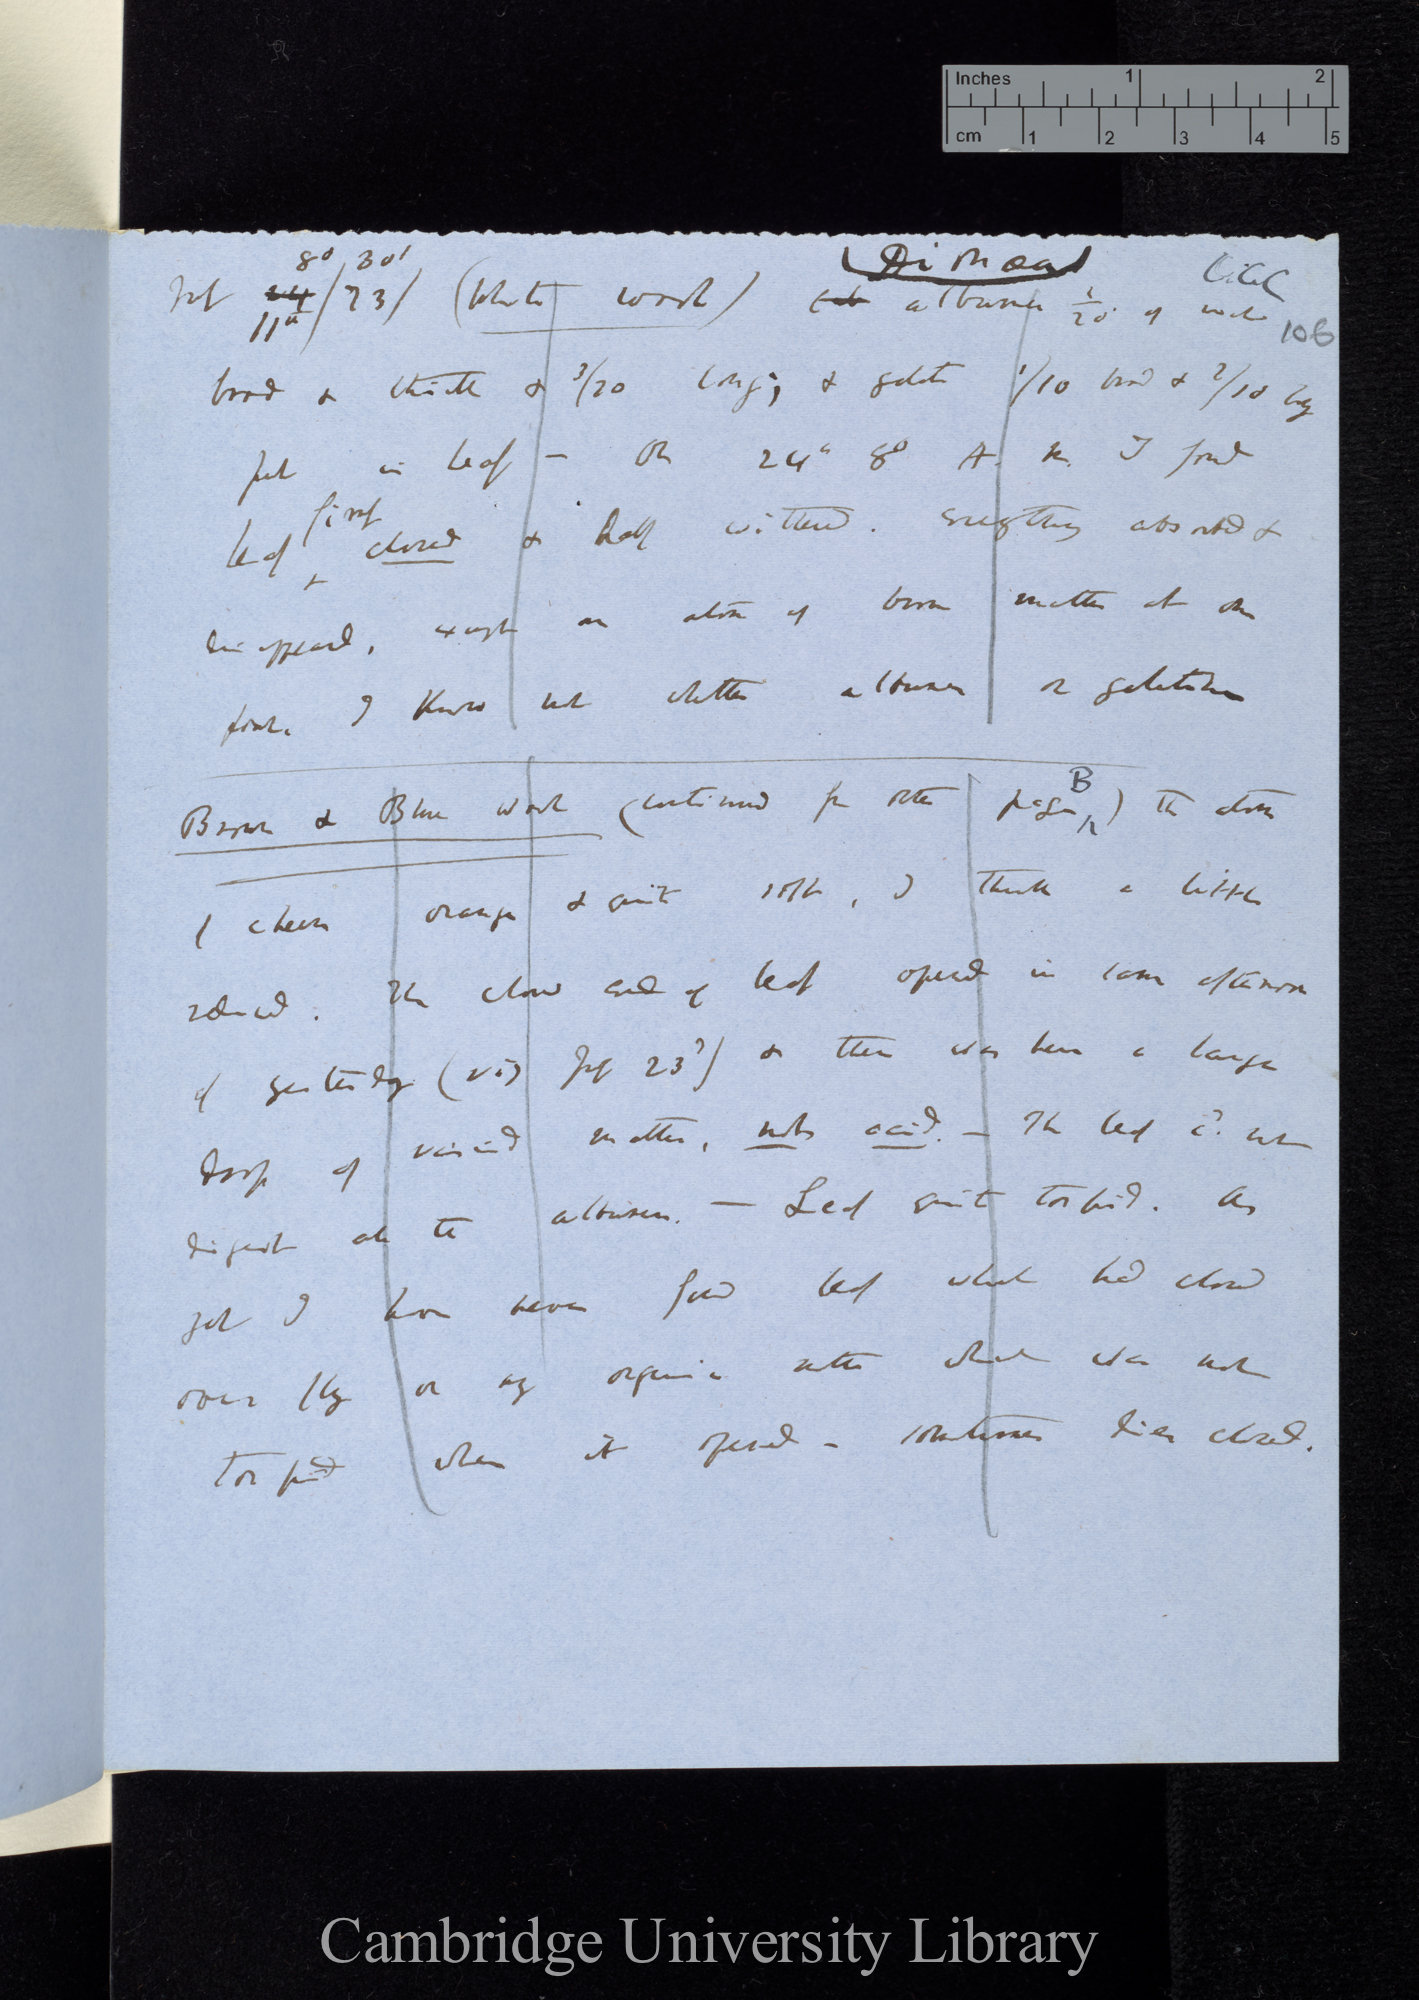 Inches 1 2
cm 1 2 3 4 5
Dionaea
106
8° 30'
July 24/23/ (White wool) albumen 1/20 of inch
11°
broad & thick & 3/20 long; & gelatin 1/10 broad & 2/10 long
put in leaf — On 24th 8° A. M. I found
leaf first closed & half withered. Everything absorbed &
disappeared, except an atom of brown matter at one
point. I know not whether albumen or gelatine
Brown & Blue wool (continued from other page B) The atom
of cheese orange & quite soft, I think a little
reduced. The closed end of leaf opened in course afternoon
of yesterday (viz July 23d) & there was here a large
drop of viscid matter, not acid. — The leaf cd. not
digest all the albumen. — Leaf quite torpid. As
yet I have never found leaf which had closed
over fly or any organic matter which was not
torpid when it opened — sometimes dies closed.
Cambridge University Library